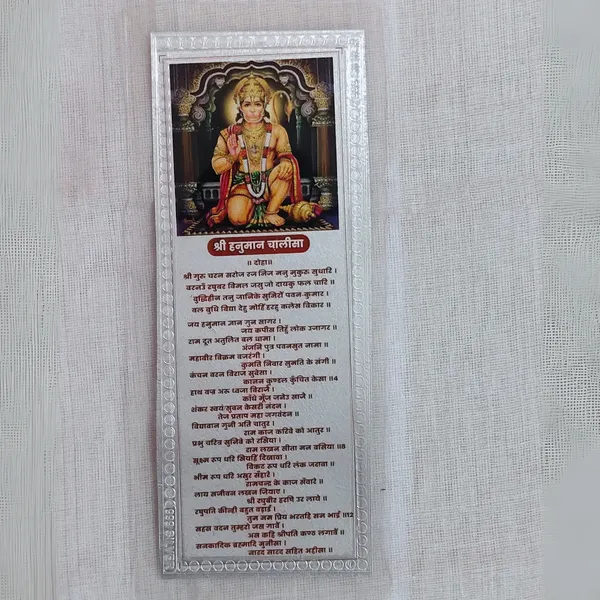 श्री हनुमान चालीसा
॥ दोहा॥
श्री गुरु चरन सरोज रज निज मनु मुकुरु सुधारि ।
वरनउँ रघुबर विमल जसु जो दायकु फल चारि ॥
बुद्धिहीन तनु जानिके सुमिरौं पवन-कुमार ।
बल बुधि विद्या देहु मोहिं हरहु कलेस विकार ॥
जय हनुमान ज्ञान गुन सागर ।
जय कपीस तिहुँ लोक उजागर ॥
राम दूत अतुलित बल धामा ।
अंजनि पुत्र पवनसुत नामा ॥
महाबीर बिक्रम बजरंगी ।
कुमति निवार सुमति के संगी ॥
कंचन वरन विराज सुवेसा ।
कानन कुण्डल कुंचित केसा ॥4
हाथ वज्र अरु ध्वजा विराजै ।
काँधे मूँज जनेउ साजै ॥
शंकर स्वयं/सुवन केसरी नंदन ।
तेज प्रताप महा जगवंदन ॥
विद्यावान गुनी अति चातुर ।
राम काज करिवे को आतुर ॥
प्रभु चरित्र सुनिवे को रसिया ।
राम लखन सीता मन वसिया ॥8
सूक्ष्म रूप धरि सियहिं दिखावा ।
विकट रूप धरि लंक जरावा ॥
भीम रूप धरि असुर सँहारे ।
रामचन्द्र के काज सँवारे ॥
लाय सजीवन लखन जियाए ।
श्री रघुबीर हरषि उर लाये ॥
रघुपति कीन्ही बहुत बड़ाई ।
तुम मम प्रिय भरतहि सम भाई ॥12
सहस वदन तुम्हरो जस गावैं ।
अस कहि श्रीपति कण्ठ लगावैं ॥
सनकादिक ब्रह्मादि मुनीसा ।
नारद सारद सहित अहीसा ॥